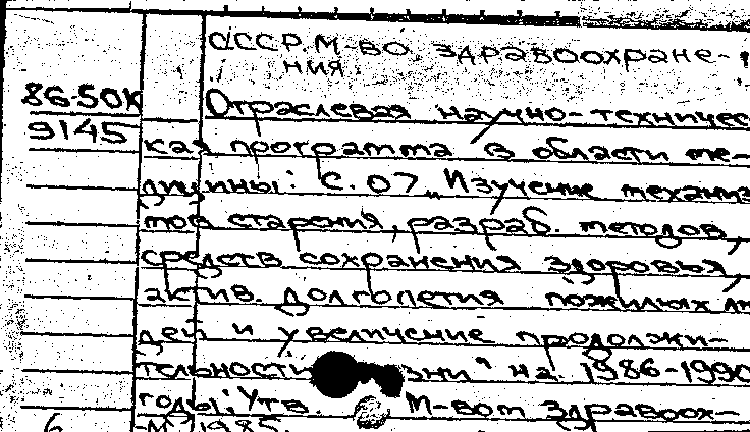 СССР. М-во здравоохране-
ния.
86-50К
9145
Отраслевая научно-техничес
кая программа в области ме-
дицины: С.07 „Изучение механиз
мов старения, разраб. методов,
средств сохранения здоровья,
актив. долголетия пожилых лю
дей и увеличение продолжи-
тельности зни" на 1986-1990
годы: Утв. М-вом здравоох-
6 М., 1985.